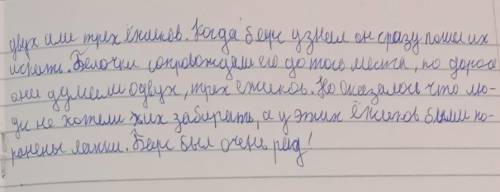 двух или трех ёжиков. Когда барс узнал он сразу пошел их
искать. Белочки сопровождали его до того места, по дороге
они думали о двух, трех ёжиков. Но оказалось что лю-
ди не хотели их забирать, а у этих ёжиков были по-
ранены лапки. Барс был очень рад!